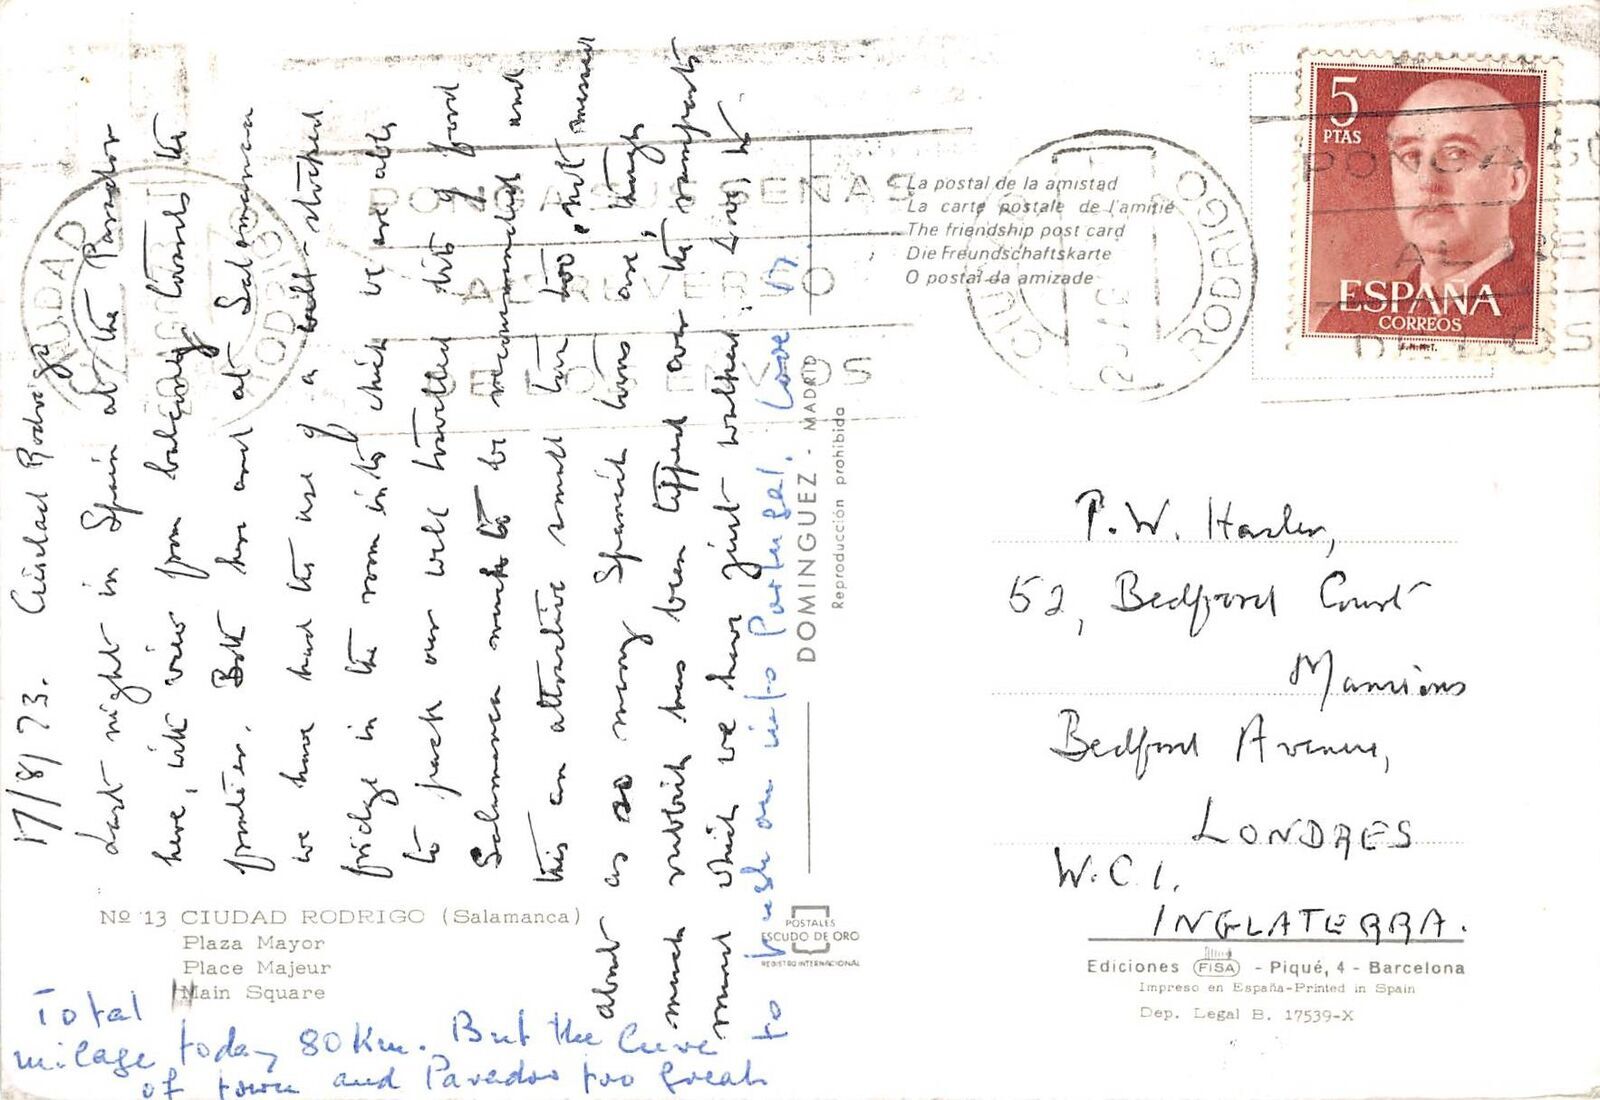 17/8/73. Ciudad Rodrigo
Last night in Spain at the Parador
here, with view from balcony towards the
frontier. Both here and at Salamanca
we have had the use of a well-stocked
fridge in the room into which we are able
to pack our well travelled bits of food
Salamanca much to be recommended and
this an attractive small town too, not messed
about as so many Spanish towns are, though
much rubbish has been tipped over the ramparts
round which we have just walked. Love,
Total
milage today 80 Km. But the Curve
of town and Parador too great
to push on into Portugal. Love
La postal de la amistad
La carte postale de l'amitié
The friendship post card
Die Freundschaftskarte
O postal da amizade
5
PTAS
ESPAÑA
CORREOS
F.N.M.T.
CIUDAD RODRIGO
PONGA SUS SEÑAS
AL REVERSO
DE LOS ENVIOS
CIUDAD RODRIGO
PONGA SU
AL RE
DE LOS
DOMINGUEZ - MADRID
Reproducción prohibida
P. W. Hasler,
52, Bedford Court
Mansions
Bedford Avenue,
LONDRES
W.C.1.
INGLATERRA.
Nº 13 CIUDAD RODRIGO (Salamanca)
Plaza Mayor
Place Majeur
Main Square
POSTALES
ESCUDO DE ORO
REGISTRO INTERNACIONAL
Ediciones FISA - Piqué, 4 - Barcelona
Impreso en España-Printed in Spain
Dep. Legal B. 17539-X